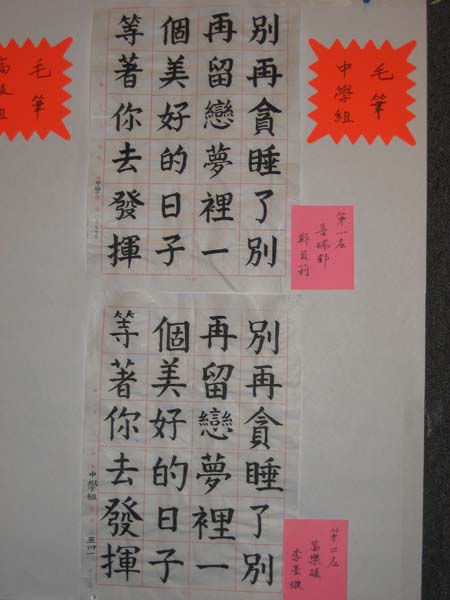 毛筆
中學組
別再貪睡了別
再留戀夢裡一
個美好的日子
等著你去發揮
第一名
中學
別再貪睡了別
再留戀夢裡一
個美好的日子
等著你去發揮
中學組
第二名
毛筆